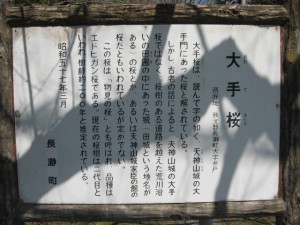 大手桜
所在地 秩父郡長瀞町大字井戸
大手桜は、読んで字の如く、天神山城の大
手門にあった桜と解されている。
しかし、古老の話によると、天神山城の大手
桜ではなく、桜樹のある道路を越えた荒川沿
いの田圃の中にあった城(田城という地名が
ある)の桜とか、あるいは天神山城家臣の館の
桜だともいわれているが定かでない。
この桜は「物見の桜」とも呼ばれ、品種は
エドヒガン桜である。現在の桜樹は二代目と
いわれ樹齢約二〇〇年と推定されている。
昭和五十七年三月
長瀞町